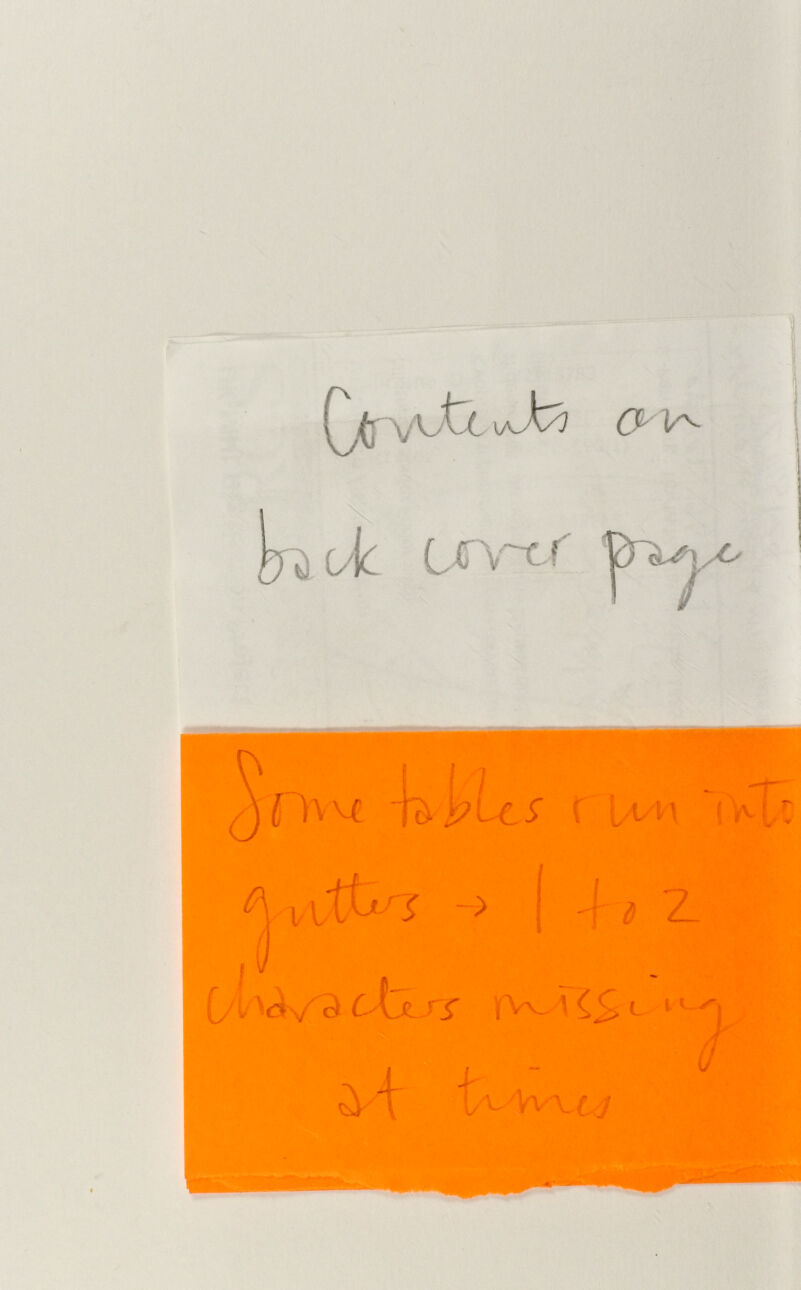 Contents on
back cover page
Some tables run into
gutters → 1 to 2
characters missing
at times